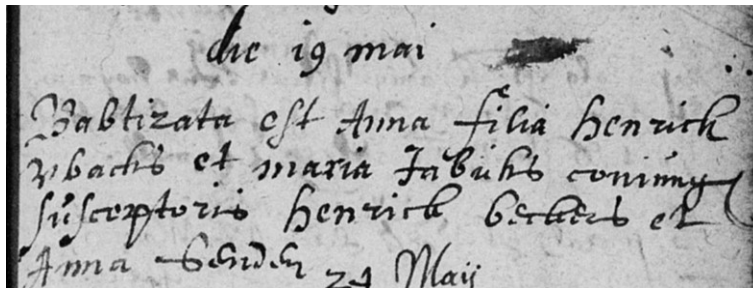 die 19 mai
Babtizata est Anna filia Henrick
vbachs et maria Jabuhs coniung
susceptoris Henrick beckers et
Anna Senden 24 Maij